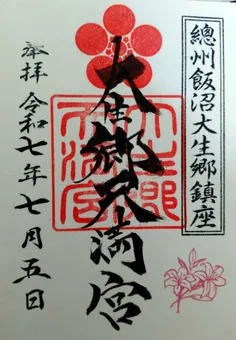 總州飯沼大生郷鎮座
大生郷天満宮
大生郷
天満宮
奉拝
令和七年七月五日